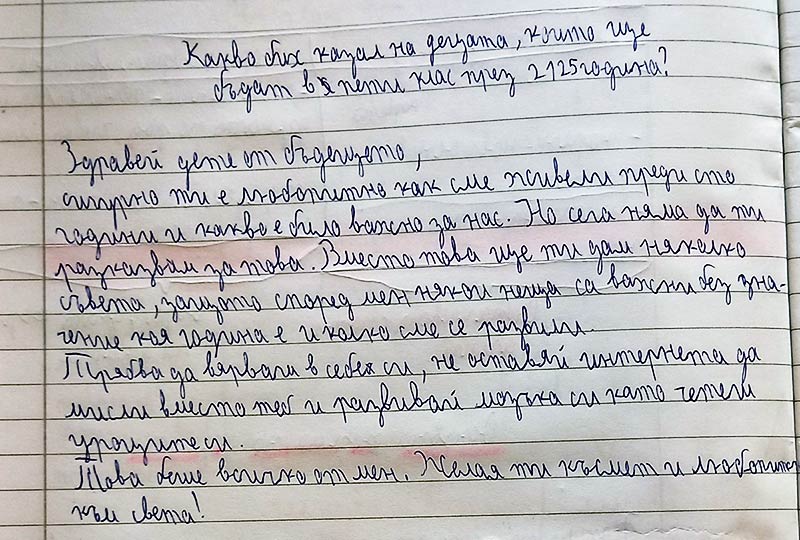 Какво бих казал на децата, които ще
бъдат в пети клас през 2125 година?
Здравей дете от бъдещето,
сигурно ти е любопитно как сме живели преди сто
години и какво е било важно за нас. Но сега няма да ти
разказвам за това. Вместо това ще ти дам няколко
съвета, защото според мен някои неща са важни без зна-
чение коя година е и колко сме се развили.
Трябва да вярваш в себе си, не оставяй интернета да
мисли вместо теб и развивай мозъка си като четеш
уроците си.
Това беше всичко от мен. Желая ти късмет и любопитство
към света!